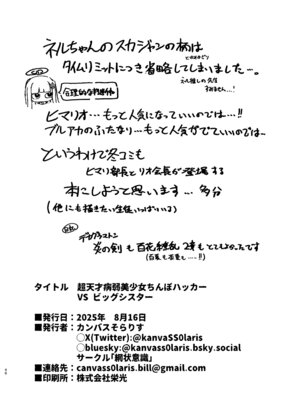 ネルちゃんのスカジャンの柄は
タイムリミットにつき省略してしまいました…。
ネル推しの先生
すみません…!
合理的な判断ね
ヒマリオ…もっと人気になっていいのでは…!!
ブルアカのふたなり…もっと人気がでていいのでは…
というわけで冬コミも
ヒマリ部長とリオ会長が登場する
本にしようと思います…多分
(他にも描きたい生徒いっぱいいる)
デカグラマトン
炎の剣も百花繚乱2章もとてもよかったです
タイトル 超天才病弱美少女ちんぽハッカー
VS ビッグシスター
■発行日：2025年 8月16日
■発行者：カンバスそらりす
◯X(Twitter):@kanvaSS0laris
◯bluesky:@kanvass0laris.bsky.social
サークル「網状意識」
■連絡先：canvass0laris.bill@gmail.com
■印刷所：株式会社栄光